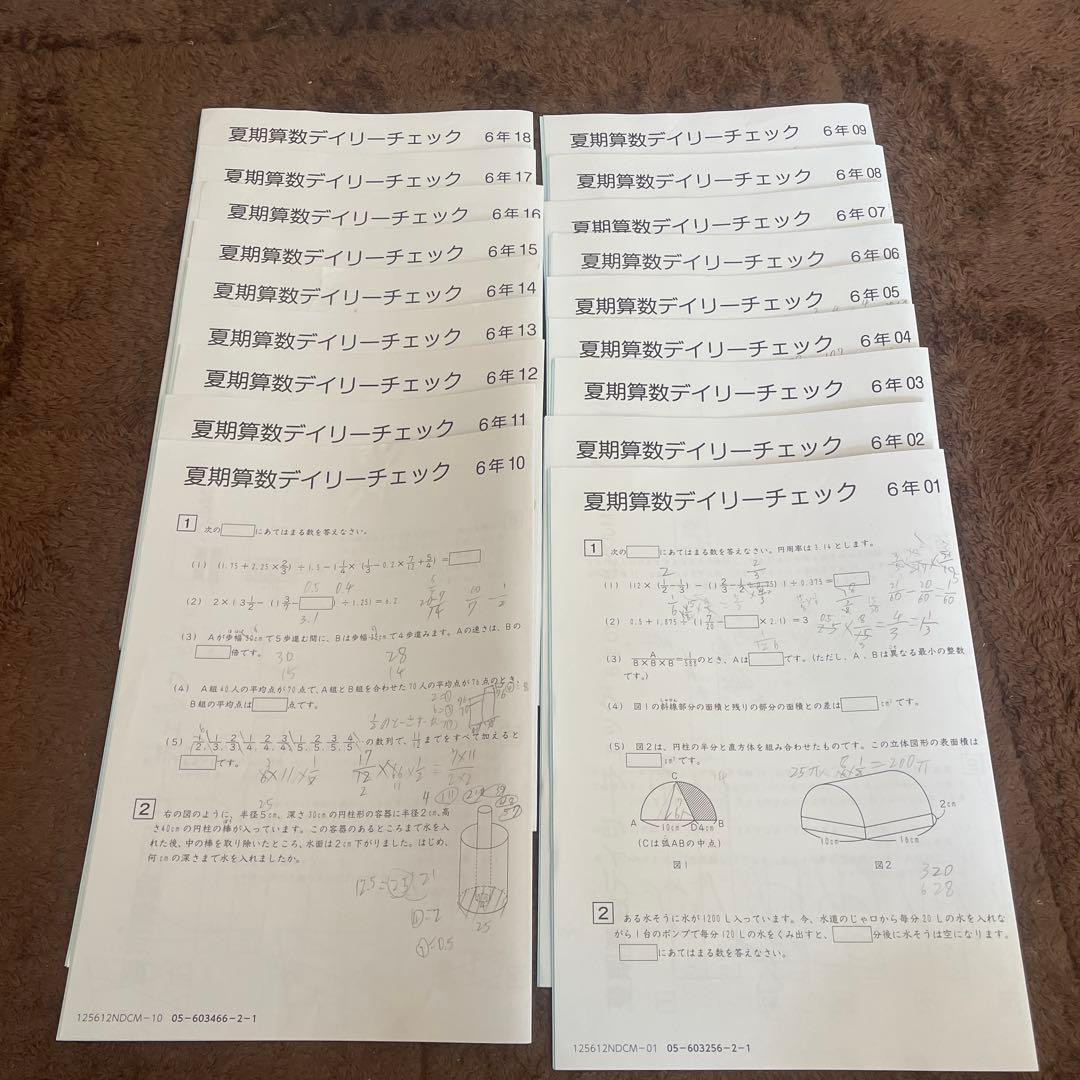 夏期算数デイリーチェック 6年18
夏期算数デイリーチェック 6年17
夏期算数デイリーチェック 6年16
夏期算数デイリーチェック 6年15
夏期算数デイリーチェック 6年14
夏期算数デイリーチェック 6年13
夏期算数デイリーチェック 6年12
夏期算数デイリーチェック 6年11
夏期算数デイリーチェック 6年10
1 次の□にあてはまる数を答えなさい。
(1) (1.75+2.25×2/3)÷1.5-1 1/4×(1/3-0.2×7/12+5/4)=□
0.5 0.4
3.1
(3) Aが歩幅30cmで5歩進む間に、Bは歩幅35cmで4歩進みます。Aの速さは、Bの
□倍です。
30 28
15 14
(4) A組40人の平均点が70点で、A組とB組を合わせた70人の平均点が76点のとき、
B組の平均点は□点です。
(5) 1/2, 1/3, 2/3, 1/4, 2/4, 3/4, 1/5, 2/5, 3/5, 4/5 の数列で、11/12までをすべて加えると
□です。
2 右の図のように、半径5cm、深さ30cmの円柱形の容器に半径2cm、高
さ40cmの円柱の棒が入っています。この容器のあるところまで水を入
れた後、中の棒を取り除いたところ、水面は2cm下がりました。はじめ、
何cmの深さまで水を入れましたか。
25
④=2
①=0.5
125612NDCM-10 05-603466-2-1
夏期算数デイリーチェック 6年09
夏期算数デイリーチェック 6年08
夏期算数デイリーチェック 6年07
夏期算数デイリーチェック 6年06
夏期算数デイリーチェック 6年05
夏期算数デイリーチェック 6年04
夏期算数デイリーチェック 6年03
夏期算数デイリーチェック 6年02
夏期算数デイリーチェック 6年01
1 次の□にあてはまる数を答えなさい。円周率は3.14とします。
(3) A/B×B×B=1/588のとき、Aは□です。(ただし、A、Bは異なる最小の整数
です。)
(4) 図1の斜線部分の面積と残りの部分の面積との差は□cm²です。
しゃせん
(5) 図2は、円柱の半分と直方体を組み合わせたものです。この立体図形の表面積は
□cm²です。
C
A 10cm D 4cm B
(Cは弧ABの中点)
図1
2cm
10cm 16cm
図2
320
628
2 ある水そうに水が1200L入っています。今、水道のじゃ口から毎分20Lの水を入れな
がら1台のポンプで毎分120Lの水をくみ出すと、□分後に水そうは空になります。
□にあてはまる数を答えなさい。
125612NDCM-01 05-603256-2-1